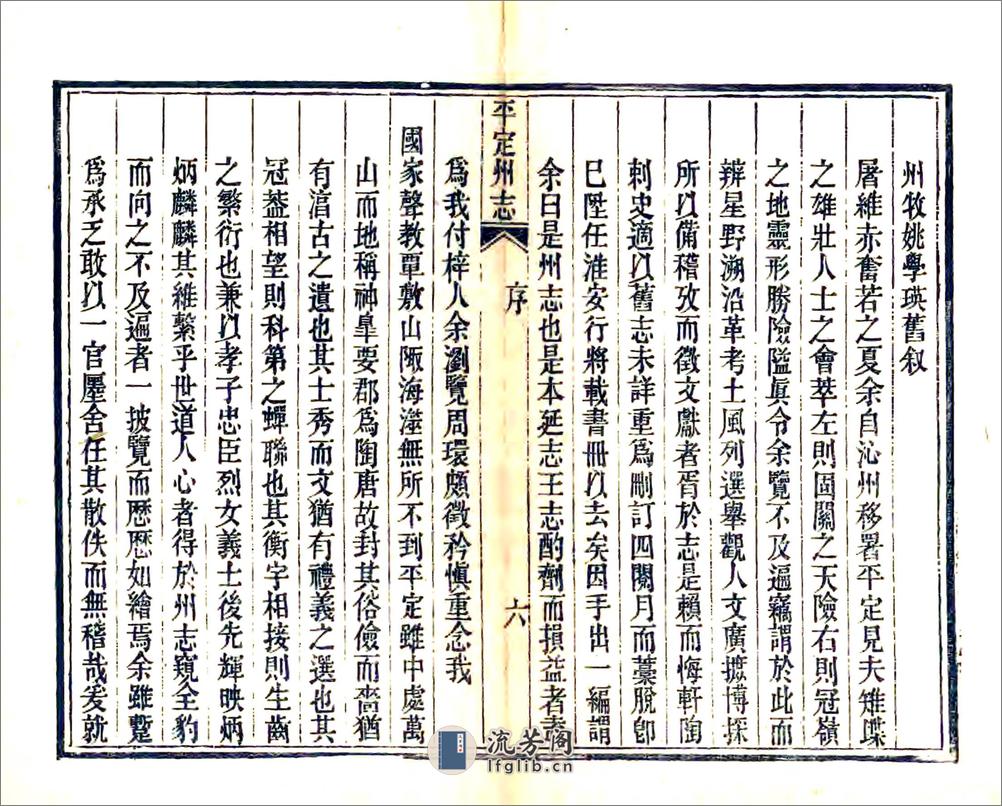 州牧姚學瑛舊叙
屠維赤奮若之夏余自沁州移署平定見夫雉堞
之雄壯人士之會萃左則固關之天險右則冠嶺
之地靈形勝險隘眞令余覽不及遍竊謂於此而
辨星野溯沿革考土風列選舉觀人文廣摭博採
所以備稽攷而徵文獻者胥於志是賴而悔軒陶
刺史適以舊志未詳重爲刪訂四閱月而藁脫卽
巳陞任淮安行將載書冊以去矣因手出一編謂
余曰是州志也是本延志王志酌劑而損益者
平定州志
序
六
爲我付梓人余瀏覽周環頗徵矜愼重念我
國家聲教覃敷山陬海澨無所不到平定雖中處萬
山而地稱神臯要郡爲陶唐故封其俗儉而嗇猶
有湻古之遺也其士秀而文猶有禮義之選也其
冠葢相望則科第之蟬聯也其衡宇相接則生齒
之繁衍也兼以孝子忠臣烈女義士後先輝映炳
炳麟麟其維繫乎世道人心者得於州志窺全豹
而向之不及遍者一披覽而歷歷如繪焉余雖蹔
爲承乏敢以一官廛舍任其散佚而無稽哉爰就
流芳閣
lfglib.cn